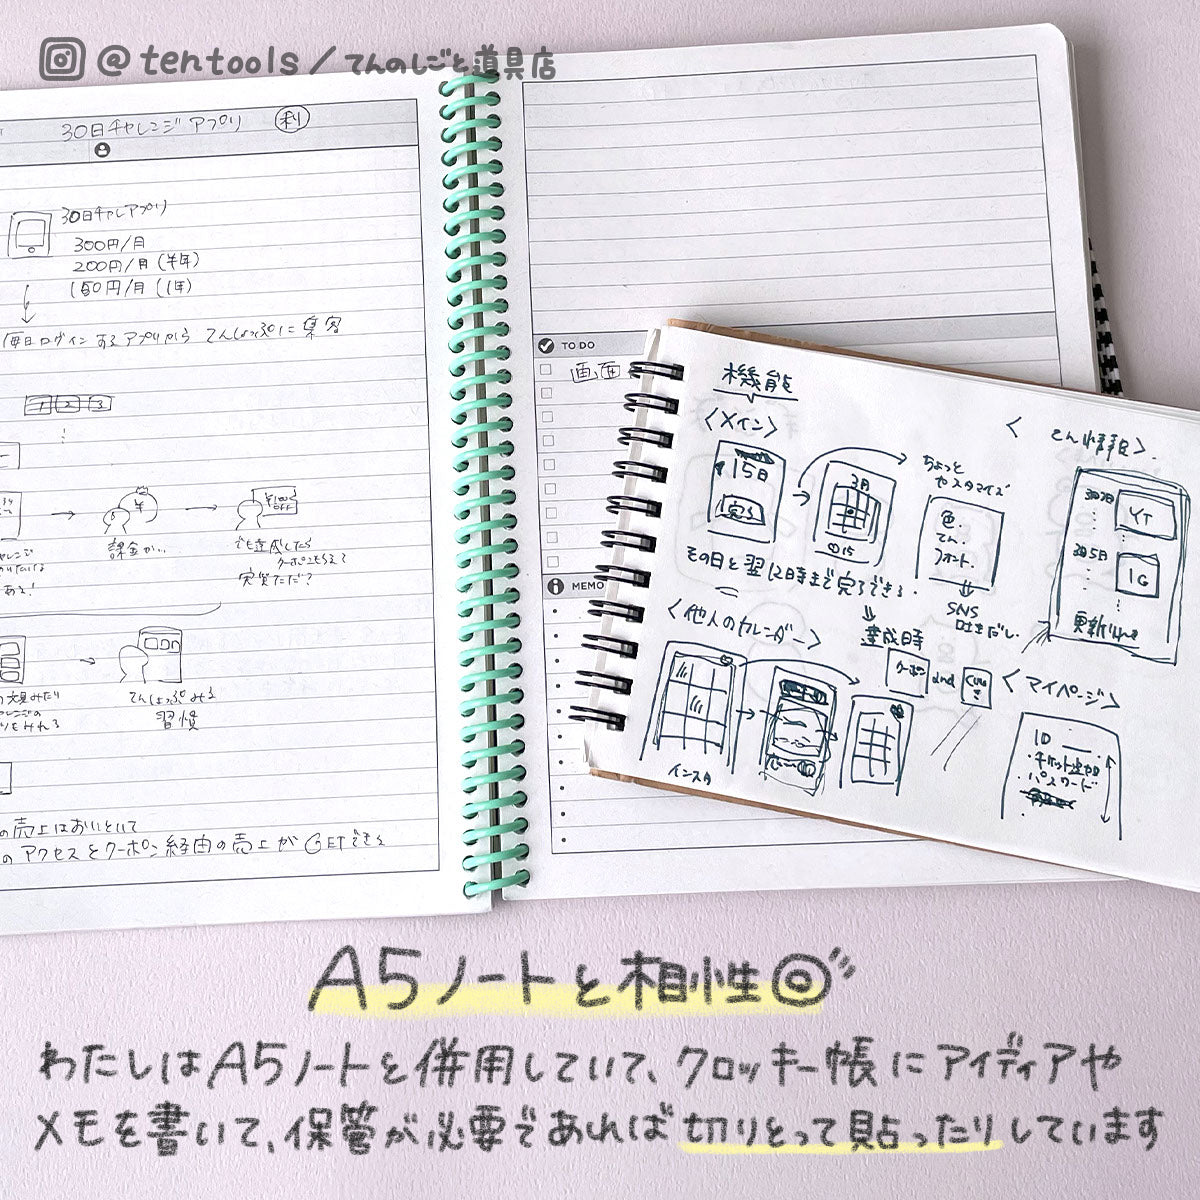 @tentools/てんのしごと道具店
30日チャレンジアプリ 利
30日チャレアプリ
300円/月
200円/月(半年)
150円/月(1年)
毎日ログインするアプリから てんしょっぷに集客
1 2 3
課金が…
¥100 OFF
でも達成したら
クーポンもらえて
実質ただ?
てんしょっぷみる
習慣
の売上はおいといて
のアクセスとクーポン経由の売上がGETできる
TO DO
画面
MEMO
機能
<メイン>
15日
完了
3月
015
ちょっと
カスタマイズ
色.
てん.
フォント.
SNS
吐きだし.
その日と翌12時まで完了できる.
達成時
クーポン and
<てん情報>.
3月7日 YT
3月5日 IG
<他人のカレンダー>
インスタ
<マイページ>
ID
・チケット追加
・パスワード
A5ノートと相性◎
わたしはA5ノートと併用していて、クロッキー帳にアイディアや
メモを書いて、保管が必要であれば切りとって貼ったりしています